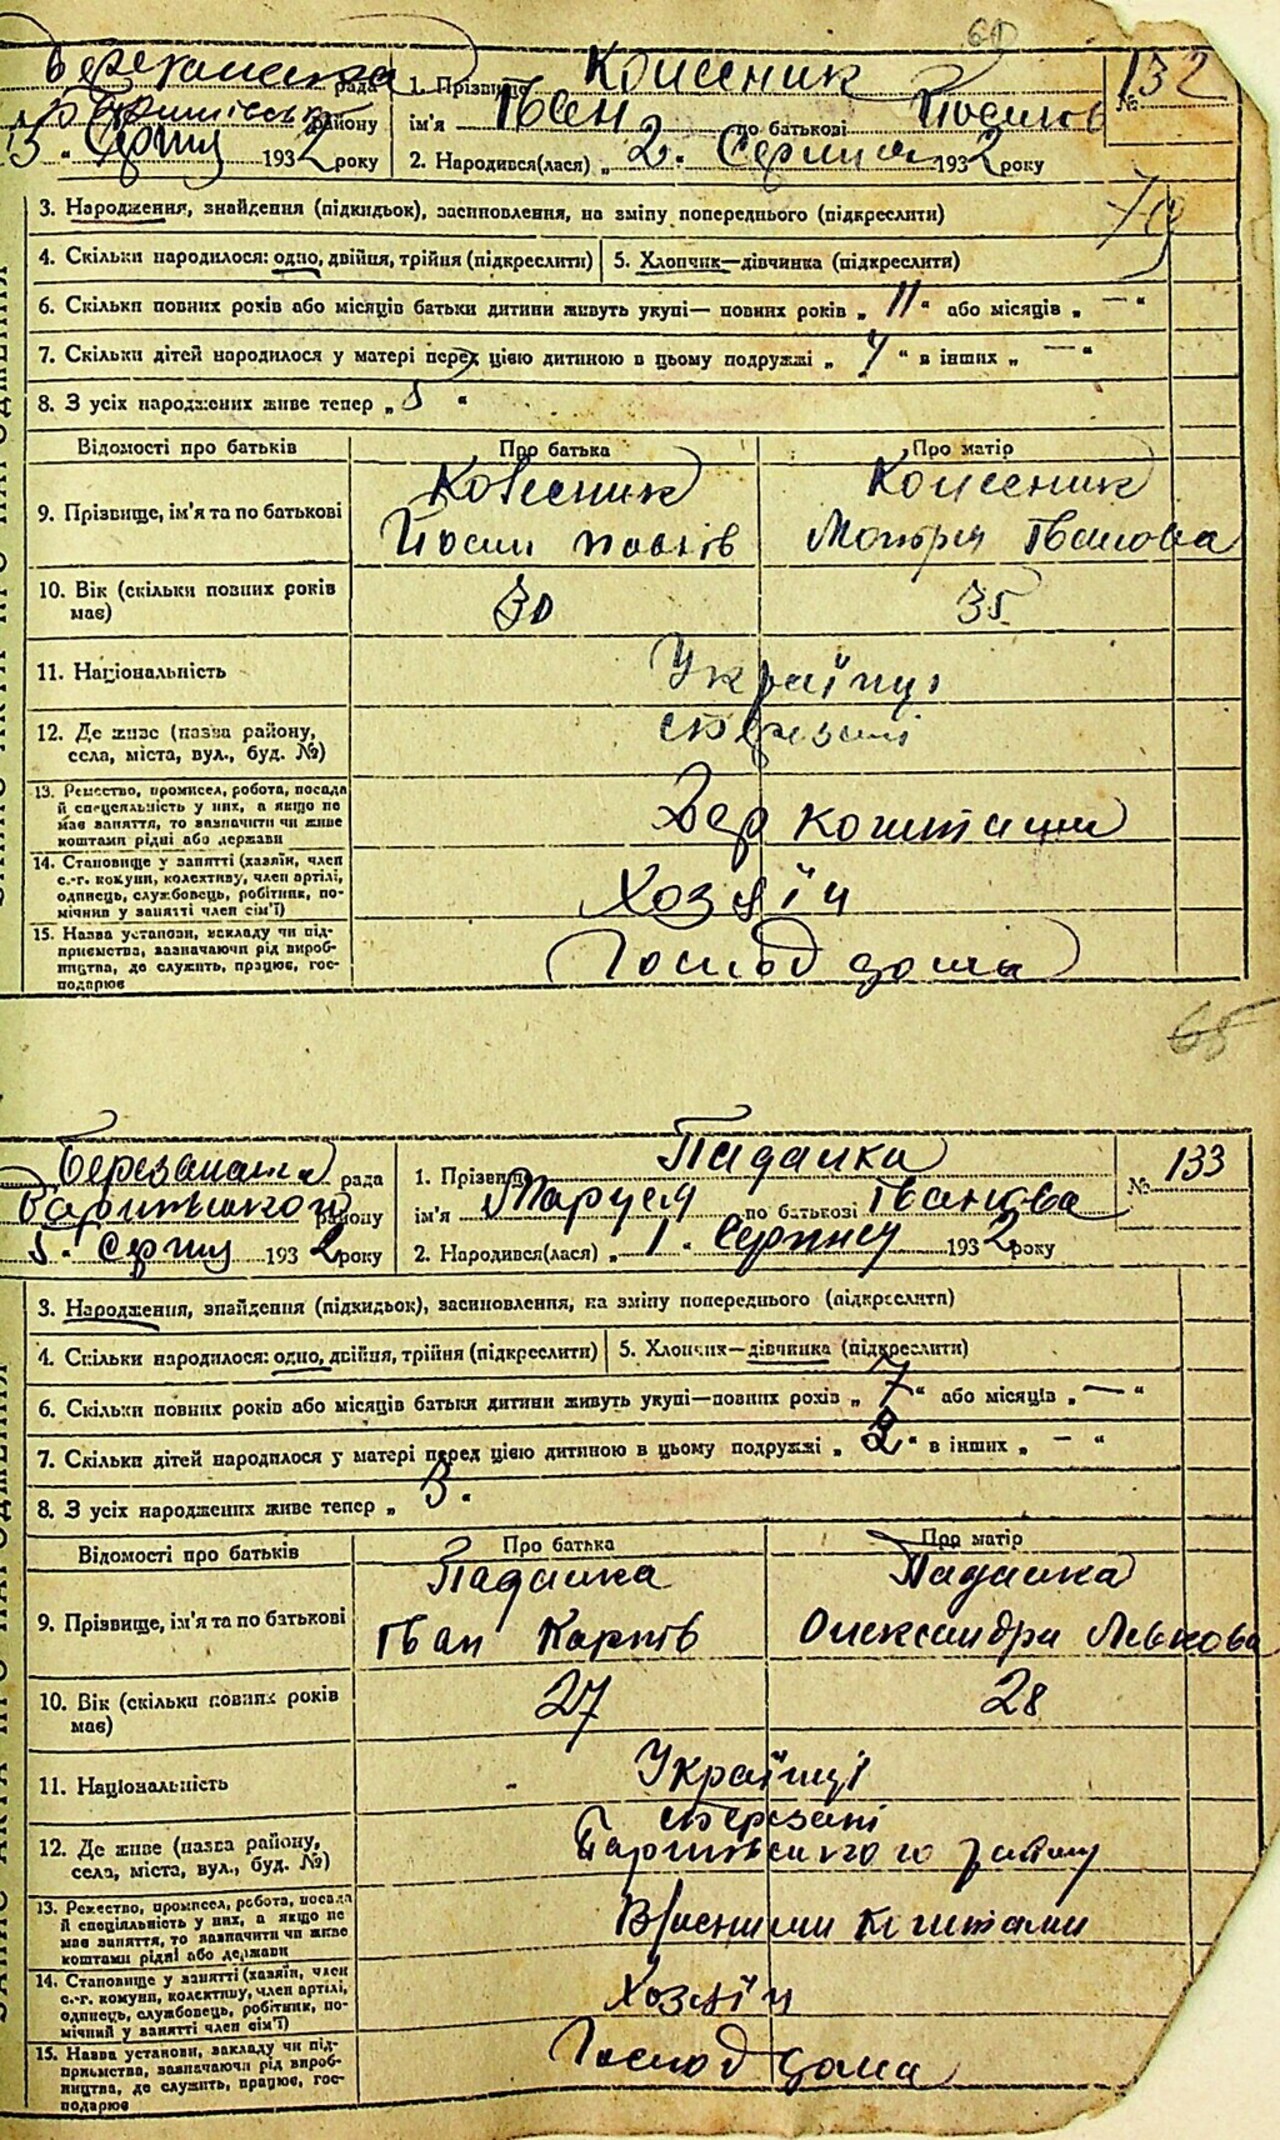 60
рада
району
1932 року
1. Прізвище Колесник
ім'я Іван по батькові Йосипів
2. Народився(лася) „ 2 " Серпня 1932 року
№ 132
3. Народження, знайдення (підкидьок), засиновлення, на зміну попереднього (підкреслити)
4. Скільки народилося: одно, двійня, трійня (підкреслити)
5. Хлопчик—дівчинка (підкреслити)
6. Скільки повних років або місяців батьки дитини живуть укупі— повних років „ 11 " або місяців „ — "
7. Скільки дітей народилося у матері перед цією дитиною в цьому подружжі „ " в інших „ — "
8. З усіх народжених живе тепер „ 5 "
Відомості про батьків
Про батька
Про матір
9. Прізвище, ім'я та по батькові
Колесник
Йосип
Колесник
Мотря Іванова
10. Вік (скільки повних років
має)
30
35
11. Національність
Українці
12. Де живе (назва району,
села, міста, вул., буд. №)
с Березані
13. Ремество, промисел, робота, посада
й спеціяльність у них, а якщо не
має заняття, то зазначити чи живе
коштами рідні або держави
коштами
14. Становище у занятті (хазяїн, член
с.-г. комуни, колективу, член артілі,
одинець, службовець, робітник, по-
мічний у занятті член сім'ї)
Хозяїн
15. Назва установи, закладу чи під-
приємства, зазначаючи рід вироб-
ництва, де служить, працює, гос-
подарює
Господ дома
65
Березанська рада
Баришівського району
5 " Серпня 1932 року
1. Прізвище Падалка
ім'я Маруся по батькові Іванова
2. Народився(лася) „ 1 " Серпня 1932 року
№ 133
3. Народження, знайдення (підкидьок), засиновлення, на зміну попереднього (підкреслити)
4. Скільки народилося: одно, двійня, трійня (підкреслити)
5. Хлопчик—дівчинка (підкреслити)
6. Скільки повних років або місяців батьки дитини живуть укупі—повних років „ 7 " або місяців „ — "
7. Скільки дітей народилося у матері перед цією дитиною в цьому подружжі „ " в інших „ — "
8. З усіх народжених живе тепер „ 3 "
Відомості про батьків
Про батька
Про матір
9. Прізвище, ім'я та по батькові
Падалка
Іван Карпів
Падалка
Олександра Левкова
10. Вік (скільки повних років
має)
27
28
11. Національність
Українці
12. Де живе (назва району,
села, міста, вул., буд. №)
с Березані
Баришівського району
13. Ремество, промисел, робота, посада
й спеціяльність у них, а якщо не
має заняття, то зазначити чи живе
коштами рідні або держави
Власними коштами
14. Становище у занятті (хазяїн, член
с.-г. комуни, колективу, член артілі,
одинець, службовець, робітник, по-
мічний у занятті член сім'ї)
Хозяїн
15. Назва установи, закладу чи під-
приємства, зазначаючи рід вироб-
ництва, де служить, працює, гос-
подарює
Господ дома